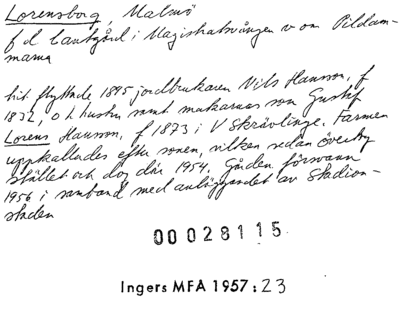 Lorensborg, Malmö
f d lantgård i Magistratsvången v om Pildam-
marna
hit flyttade 1895 jordbrukaren Nils Hansson, f
1832, o h hustru samt makarnas son Gustaf
Lorens Hansson, f 1873 i V Skrävlinge. Farmen
uppkallades efter sonen, vilken sedan övertog
stället och dog där 1954. Gården försvann
1956 i samband med anläggandet av Stadion-
staden
00028115
Ingers MFA 1957:23